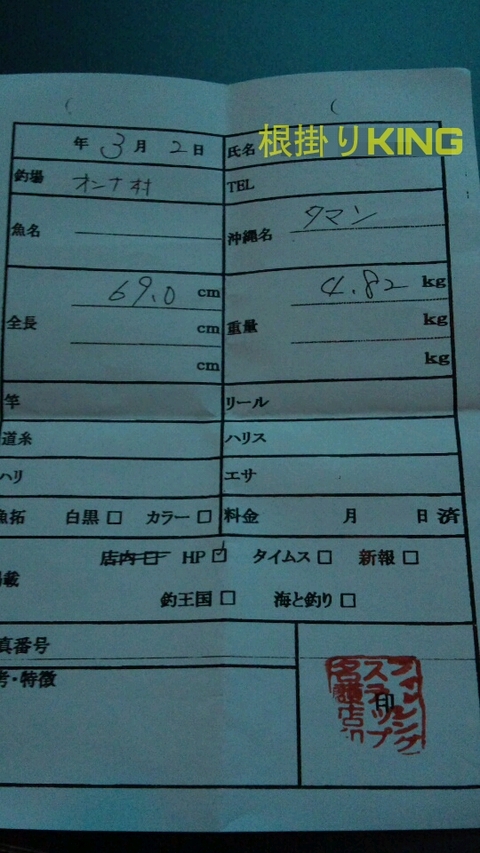 年 3月 2日 氏名 根掛りKING
釣場 オンナ村 TEL
魚名 沖縄名 タマン
69.0 cm 4.82 kg
全長 cm 重量 kg
cm kg
竿 リール
道糸 ハリス
ハリ エサ
魚拓 白黒 □ カラー □ 料金 月 日 済
店内 □ HP ☑ タイムス □ 新報 □
掲載
釣王国 □ 海と釣り □
真番号
考・特徴
フィッシング
スラップ
名護店
印